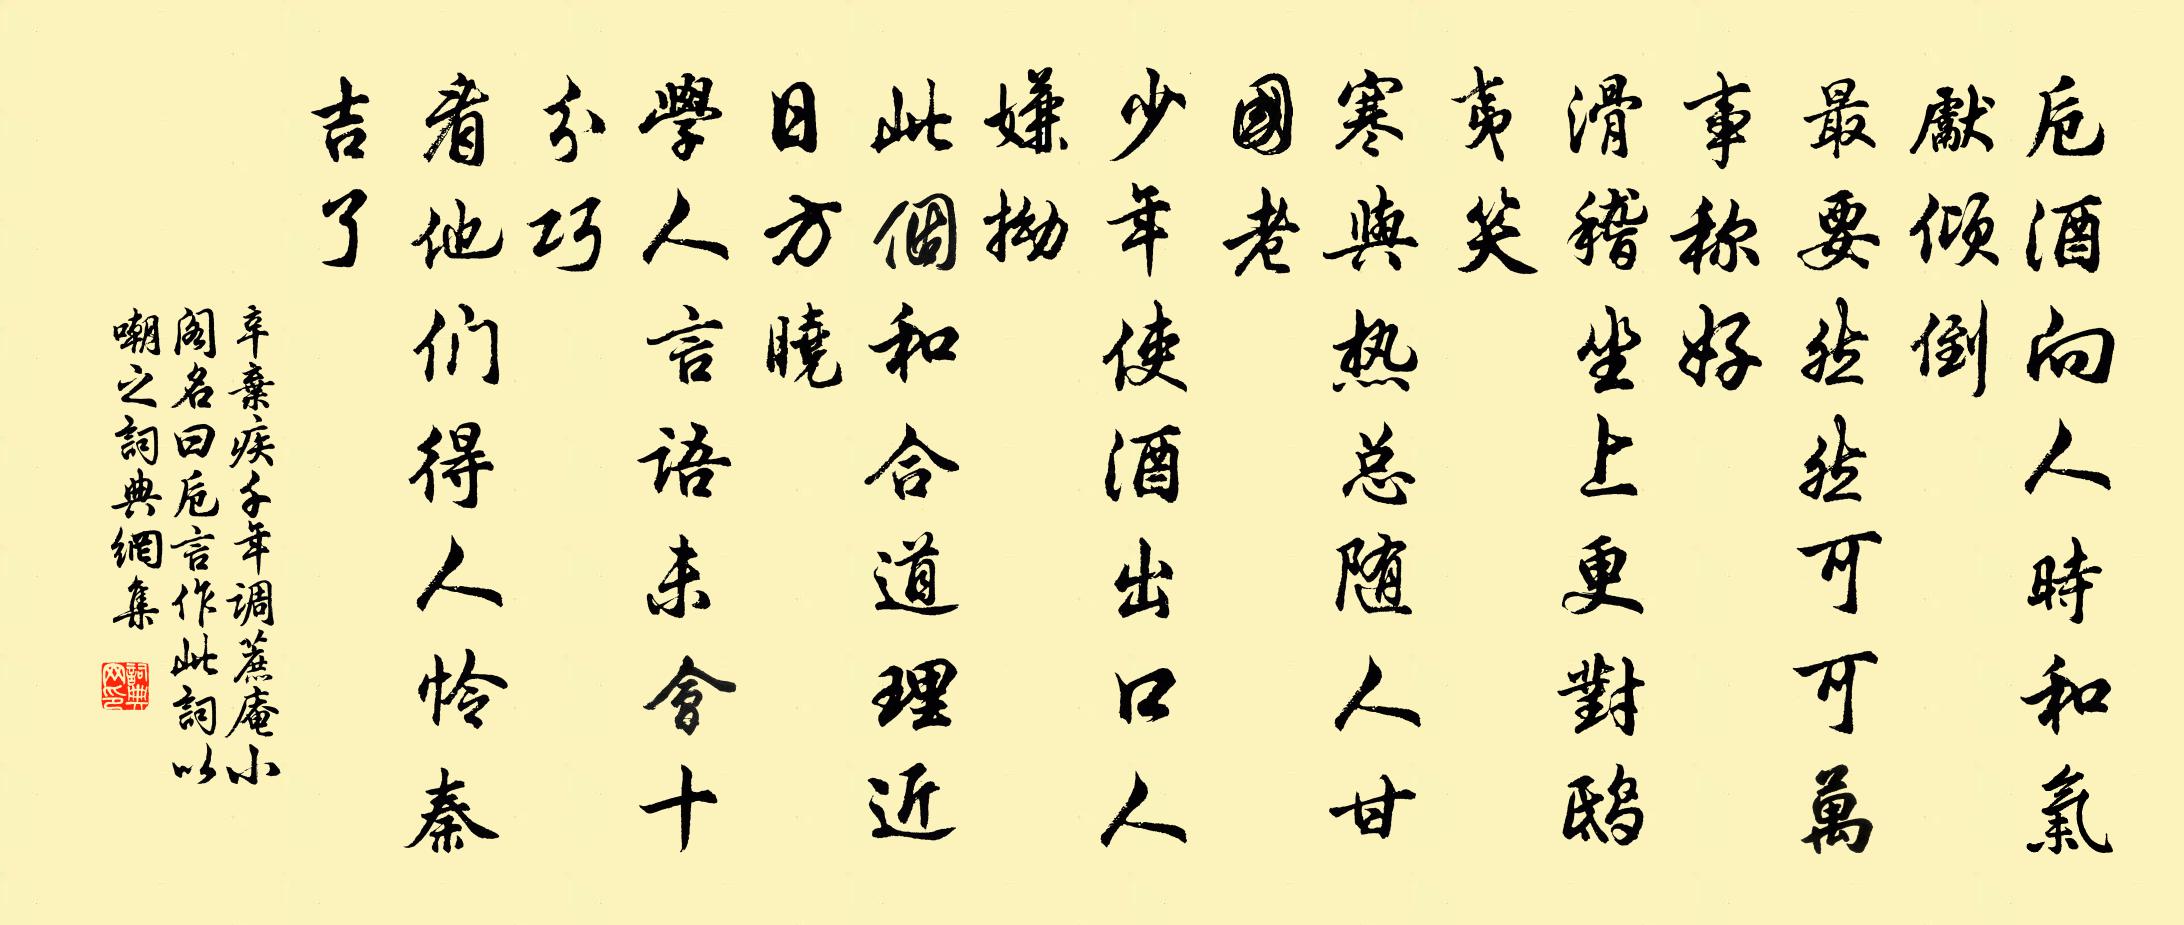 卮酒向人時和氣
獻倾倒
最要然然可可萬
事称好
滑稽坐上更對鸱
夷笑
寒與热总随人甘
國老
少年使酒出口人
嫌拗
此個和合道理近
日方曉
學人言語未會十
分巧
看他们得人怜秦
吉了
辛棄疾千年调蔗庵小
阁名曰卮言作此詞以
嘲之詞典網集
詞典网印